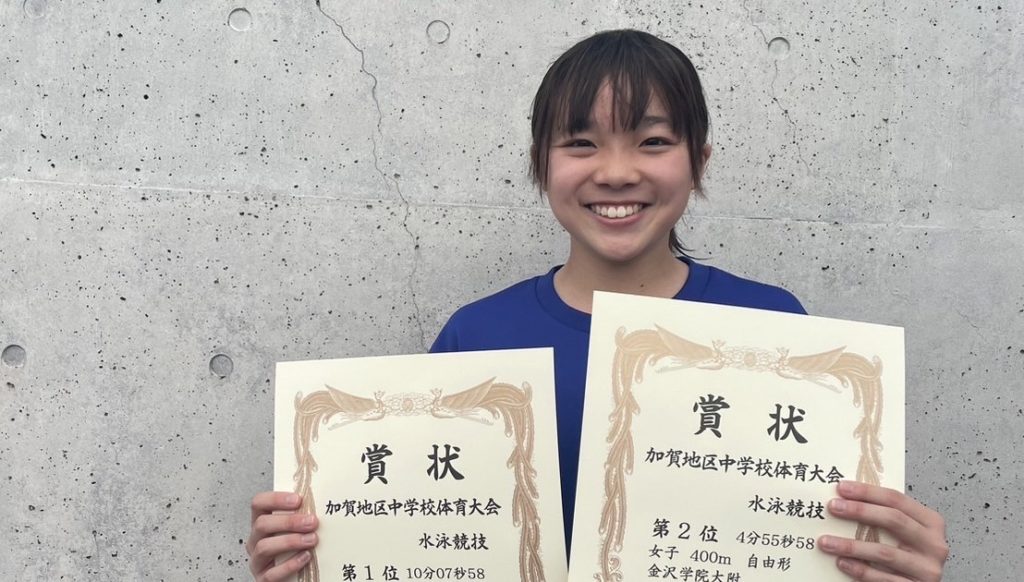 賞 状
加賀地区中学校体育大会
水泳競技
第1位 10分07秒58
賞 状
加賀地区中学校体育大会
水泳競技
第2位 4分55秒58
女子 400m 自由形
金沢学院大附